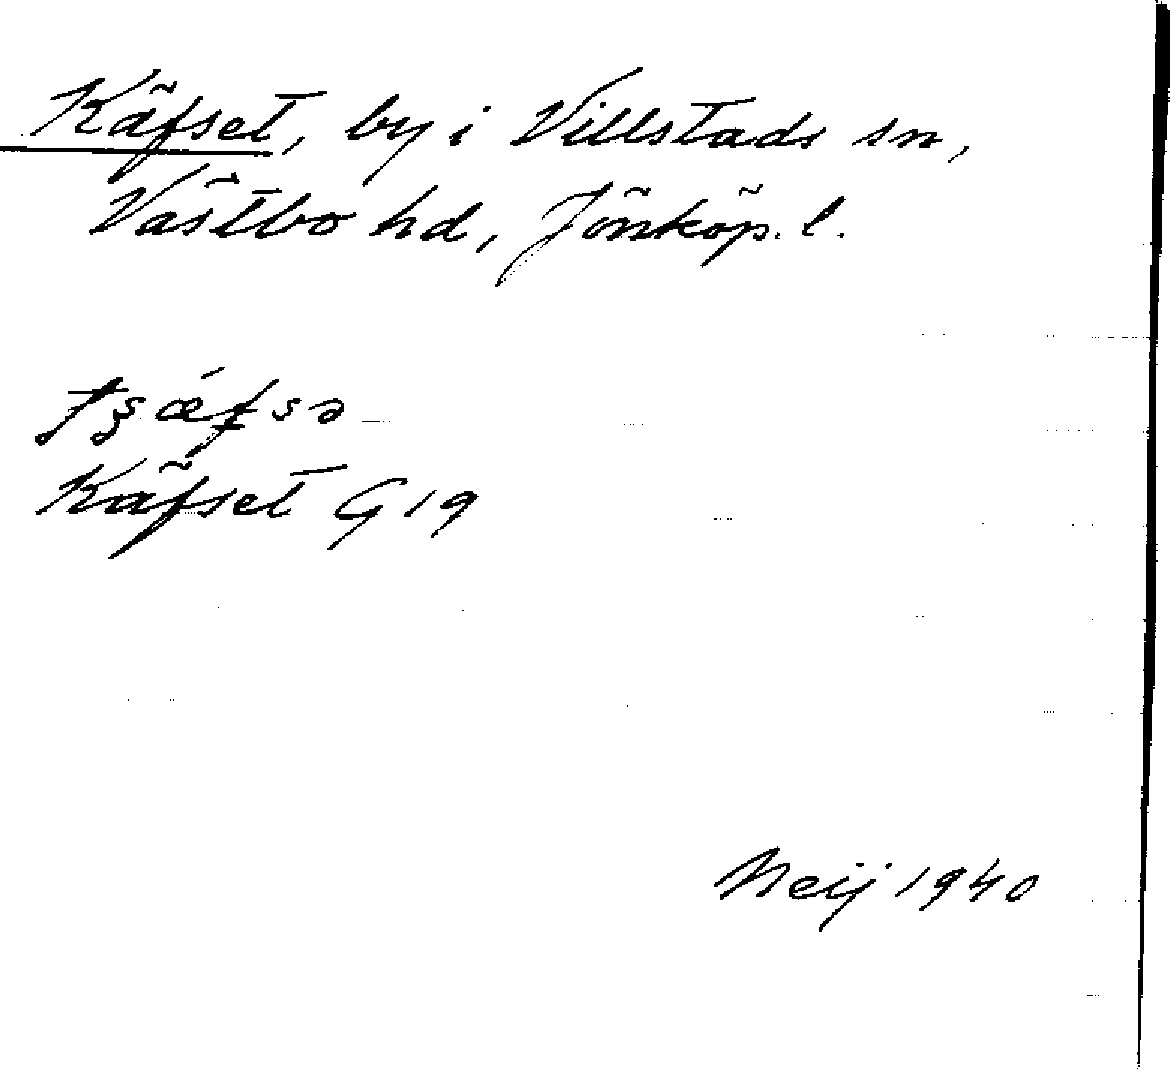 Käfset, by i Villstads sn,
Västbo hd, Jönköp. l.
Käfset G 19
Neij 1940